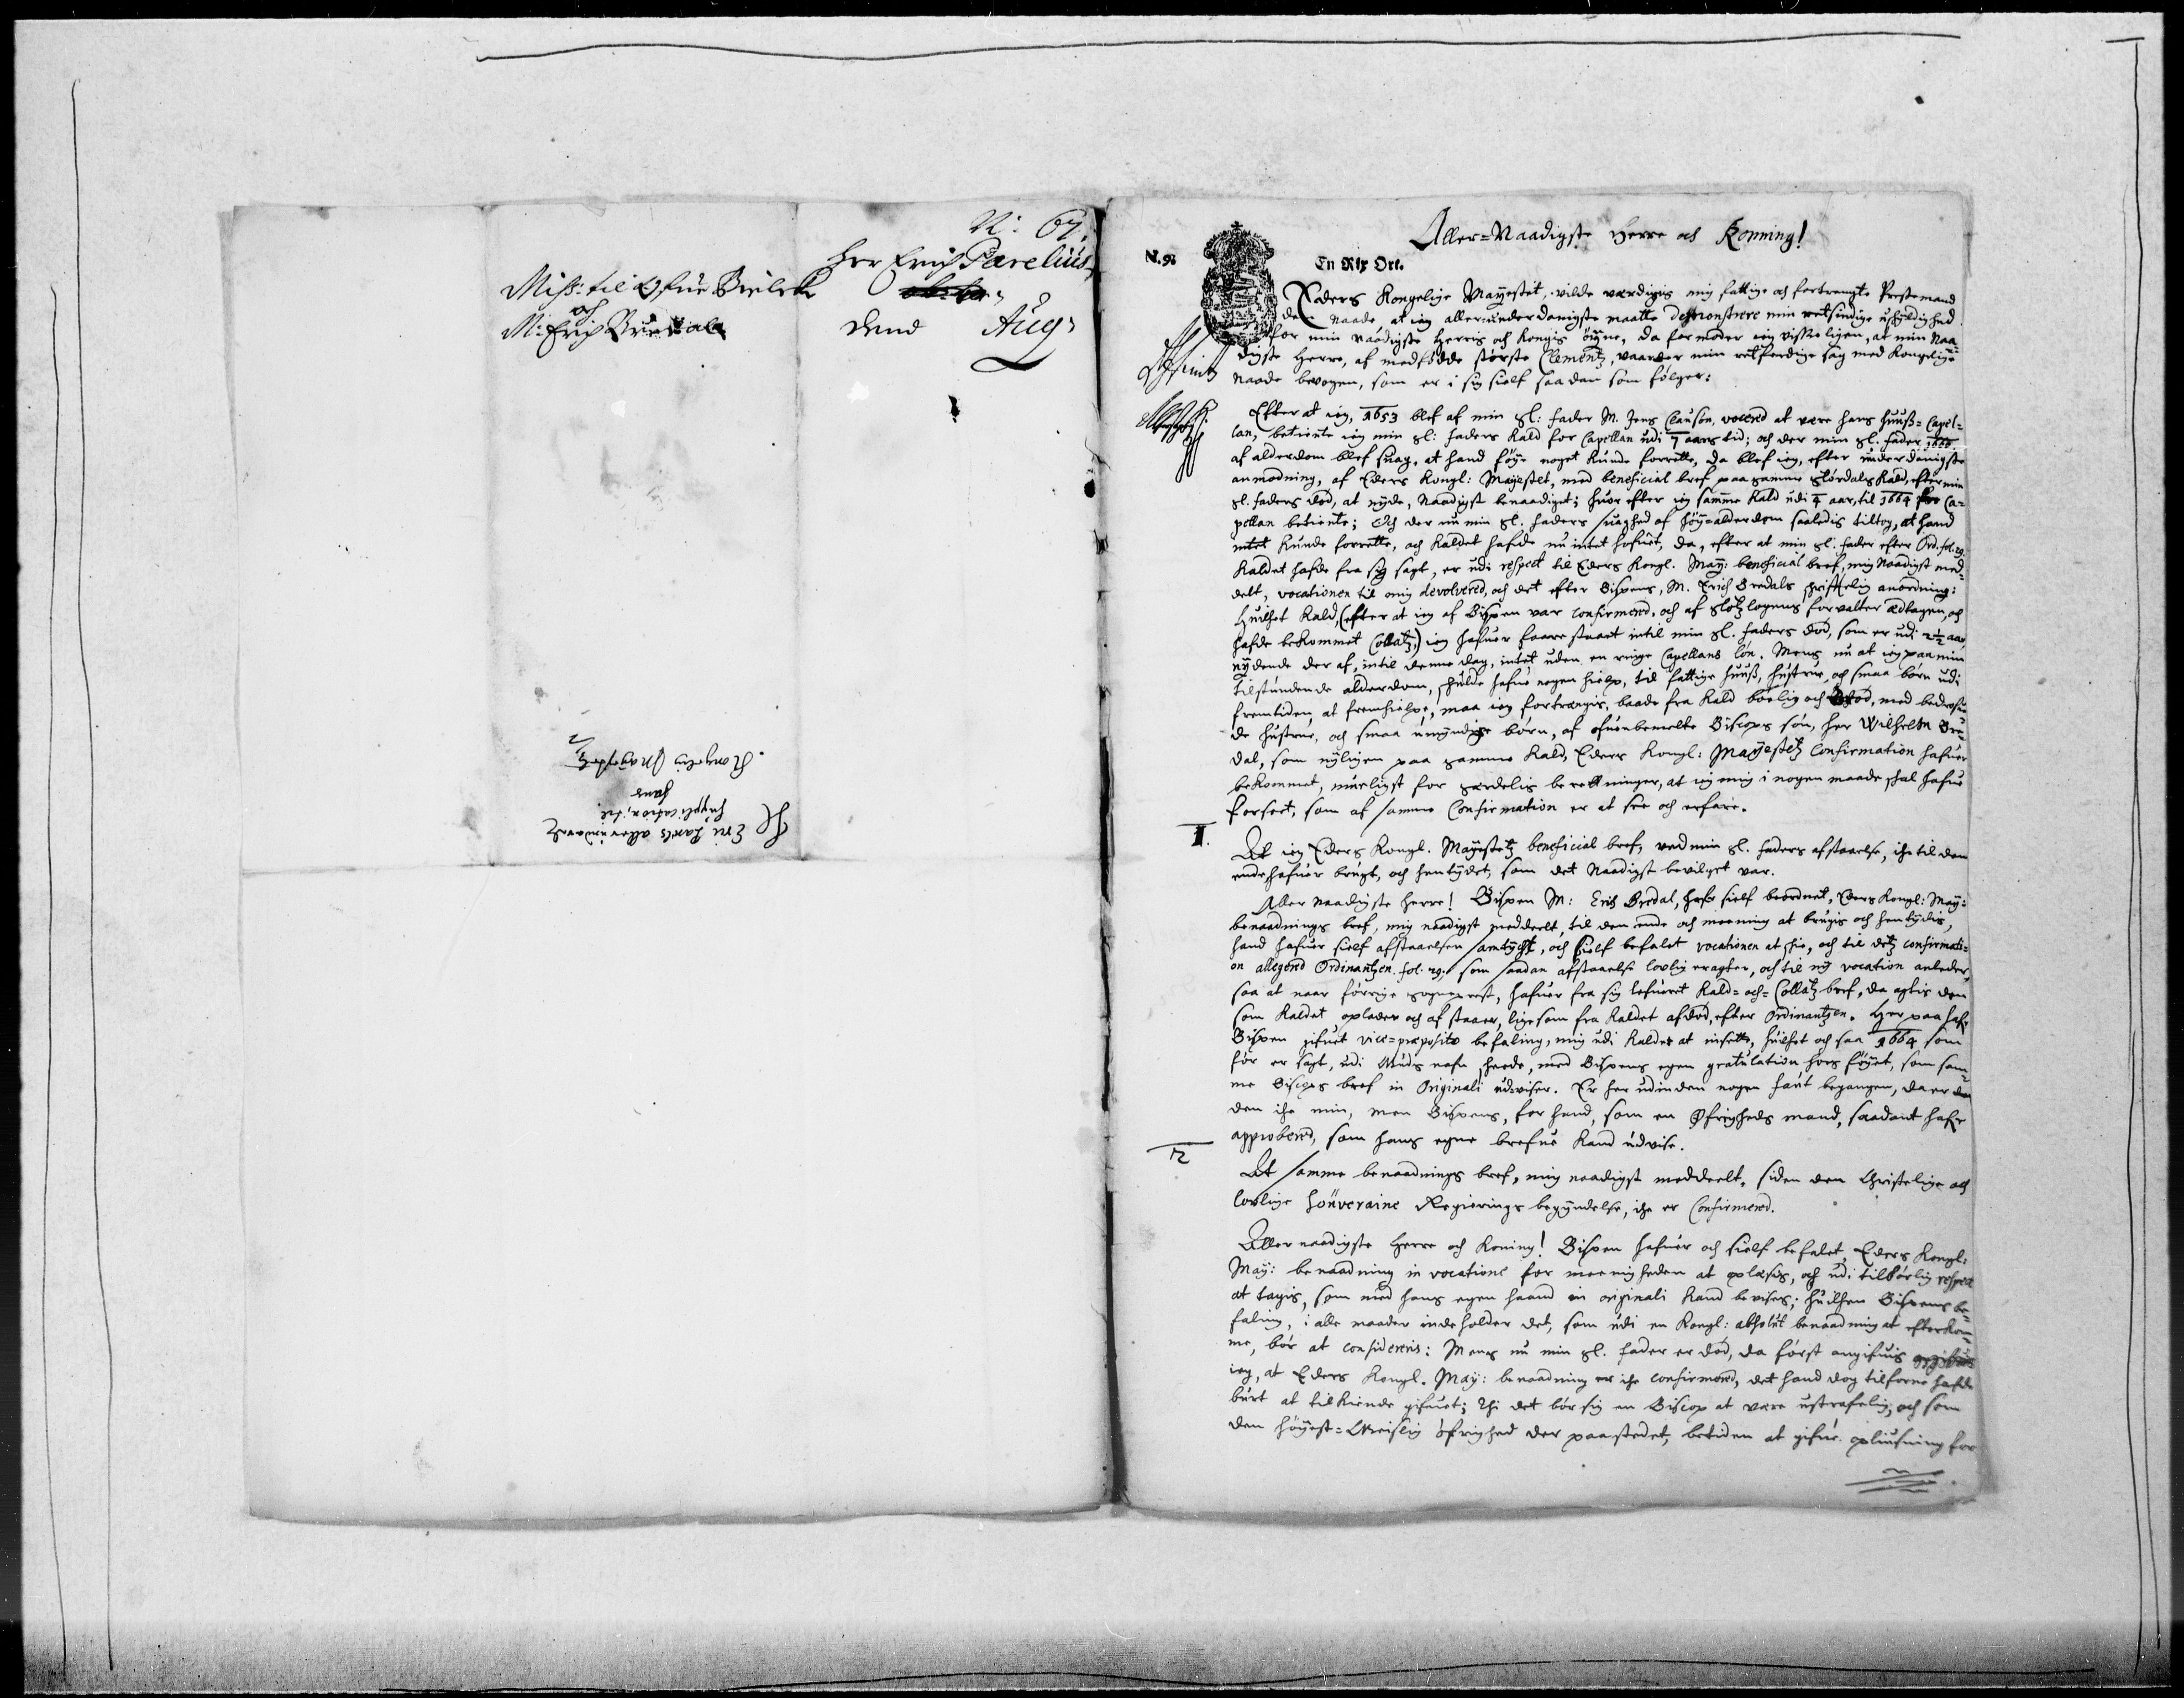 N: 67.
Her Erich Parelius
Miss: til Ofue Bielcke
och
M: Erich Bredal
dend Aug:
H Erii Parels allerunder
supplication, til
hans
Kongelig Mayestetz
Aller-Naadigste Herre och Konning!
N. 9
En Rix Ort.
Eders Kongelige Mayestet, vilde værdigis mig fattige och fortrengte Prestemand
de naade, at ieg allerunderdanigste maatte Demonstrere min retsindige uskyldighed
for min Naadigste Herris och Kongis öyne, da formoder ieg visseligen, at min Naa-
digste Herre, af medfödde störste Clementz, vaarder min retferdige sag med Kongelige
Naade bevogen, som er i sig sielf saadan som fölger:
Efter at ieg, 1653 blef af min Sl: fader M. Jens Clausön, vocered at være hans huuss-Capel-
lan, betiente ieg min Sl: faders kald for Capellan udi 7 aars tid; och der min Sl. fader 1660
af alderdom blef suag, at hand föye noget kunde forrette, da blef ieg, efter underdanigste
anmodning, af Eders Kongl: Mayestet, med beneficial bref paa samme Stördals kald, efter min
Sl. faders död, at nyde, Naadigst benaadiget; huor efter ieg samme kald udi 4 aar, til 1664 for Ca-
pellan betiente; Och der nu min Sl. faders suaghed af höy-alderdom saaledis tiltog, at hand
intet kunde forrette, och kaldet hafde nu intet hofuet, da, efter at min Sl. fader efter Ord. fol. 29.
kaldet hafde fra sig sagt, er udi respect til Eders Kongl. May: beneficial bref, mig Naadigst med-
delt, vocationen til mig devolvered, och det efter Bispens, M. Erich Bredals skriftelig anordning:
Huilket kald, (efter at ieg af Bispen var confirmered, och af Slotzlogens forvalter edtagen, och
hafde bekommet Collatz,) ieg hafuer forrestaaet intil min Sl. faders död, som er udi 2½ aar,
nydende der af, intil denne dag, intet uden en ringe Capellans lön. Mens nu at ieg paa min
tilstundende alderdom, skulde hafue nogen hielp, til fattige huuss, hustrue, och smaa börn udi
fremtiden, at fremhielpe, maa ieg fortrengis, baade fra kald bolig och bröd, med bedröfue-
de hustrue, och smaa umyndige börn, af ofuenbemelte Biscops sön, Her Wilhelm Bre-
dal, som nyligen paa samme kald, Eders Kongl: Mayestetz Confirmation hafuer
bekommet, nuerligst for særdelis berettninger, at ieg mig i nogen maade skal hafue
forseet, som af samme Confirmation er at see och erfare.
1.
At ieg Eders Kongl. Mayestetz beneficial bref, ved min Sl. faders afstaaelse, iche til den
ende hafuer brugt, och hentydet, som det Naadigst bevilget var.
Aller Naadigste Herre! Bispen M: Erich Bredal, hafr sielf beordnet, Eders Kongl: May:
benaadnings bref, mig naadigst meddeelt, til den ende och meening at brugis och hentydis,
hand hafuer sielf afstaaelsen samtycht, och sielf befalet vocationen at skee, och til detz confirmati-
on allegered Ordinantzen. fol. 29. som saadan afstaaelse lovlig eragter, och til ny vocation anleder,
saa at naar förrige sogneprest, hafuer fra sig lefueret kald-och-Collatz bref, da agtis den
som kaldet oplader och afstaaer, ligesom fra kaldet afdöd, efter Ordinantzen. Her paa hafr
Bispen gifuet vice-præposito befaling, mig udi kaldet at insette, huilket och saa 1664 som
för er sagt, udi Guds nafn skeede, med Bispens egen gratulation hoes föyet, som sam-
me Biscops bref in Originali udviser. Er her udinden nogen faut begangen, da er den
den iche min, men Bispens, for hand, som en Öfrigheds mand, saadant hafr
approbered, som hans egne brefue kand udvise.
2
At samme benaadnings bref, mig naadigst meddeelt, siden den Christelige och
lovlige Souveraine Regierings begyndelse, iche er Confirmered.
Aller naadigste Herre och Koning! Bispen hafuer och sielf befalet, Eders Kongl:
May: benaadning in vocatione for meenigheden at oplæsis, och udi tilbörlig respect
at tagis, som med hans egen haand in originali kand bevises; huilken Bispens be-
faling, i alle maader indeholder det, som udi en Kongl: absolut benaadning at efterkom-
me, bör at considereris: Mens nu min Sl. fader er död, da först angifuis
ieg, at Eders Kongl. May: benaadning er iche confirmered, det hand dog tilforne hafde
burt at tilkiende gifuet; Thi det bör sig en Biscop at være ustrafelig, och som
den höyest-Geistlig öfrighed der paa stedet, betiden at gifue opliusning for